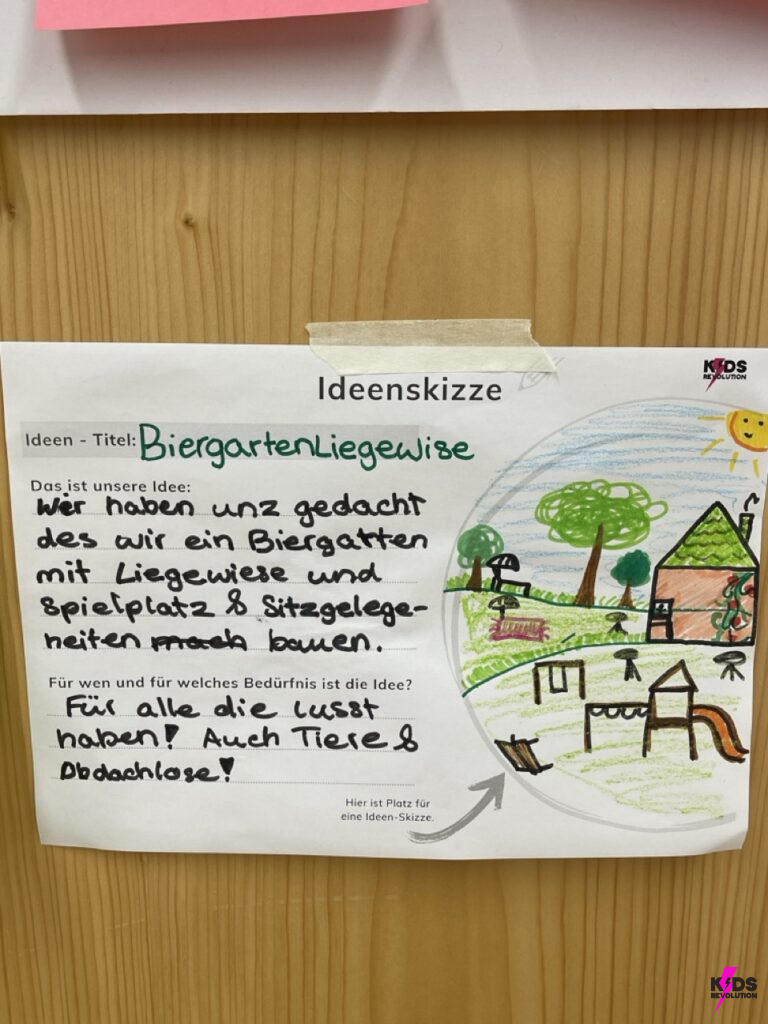 Ideenskizze
KIDS
REVOLUTION
Ideen - Titel: BiergartenLiegewise
Das ist unsere Idee:
Wir haben unz gedacht
des wir ein Biergatten
mit Liegewiese und
Spielplatz & Sitzgelege-
heiten mach bauen.
Für wen und für welches Bedürfnis ist die Idee?
Für alle die lusst
haben! Auch Tiere &
Obdachlose!
Hier ist Platz für
eine Ideen-Skizze.
KIDS
REVOLUTION